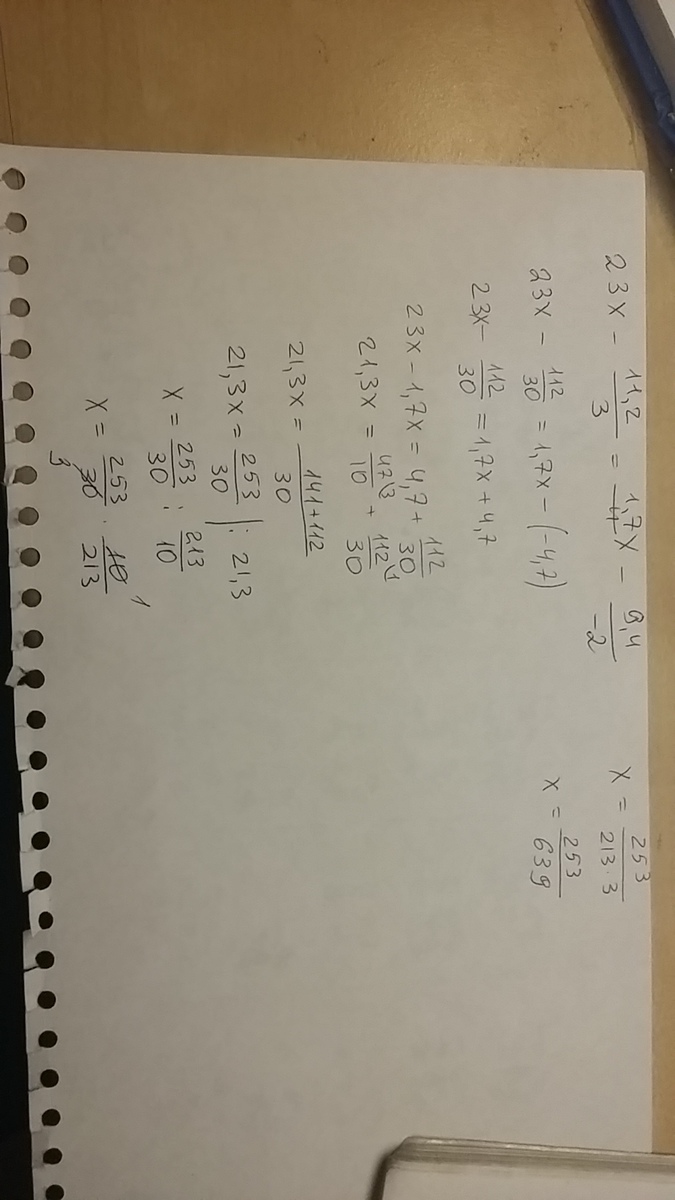 23x - 11,2/3 = 1,7x - 9,4/-2
23x - 112/30 = 1,7x - (-4,7)
23x - 112/30 = 1,7x + 4,7
23x - 1,7x = 4,7 + 112/30
21,3x = 47/10 (3 + 112/30 (1
21,3x = 141+112/30
21,3x = 253/30 | : 21,3
x = 253/30 : 213/10
x = 253/30 3 · 10/213 1
x = 253/213·3
x = 253/639